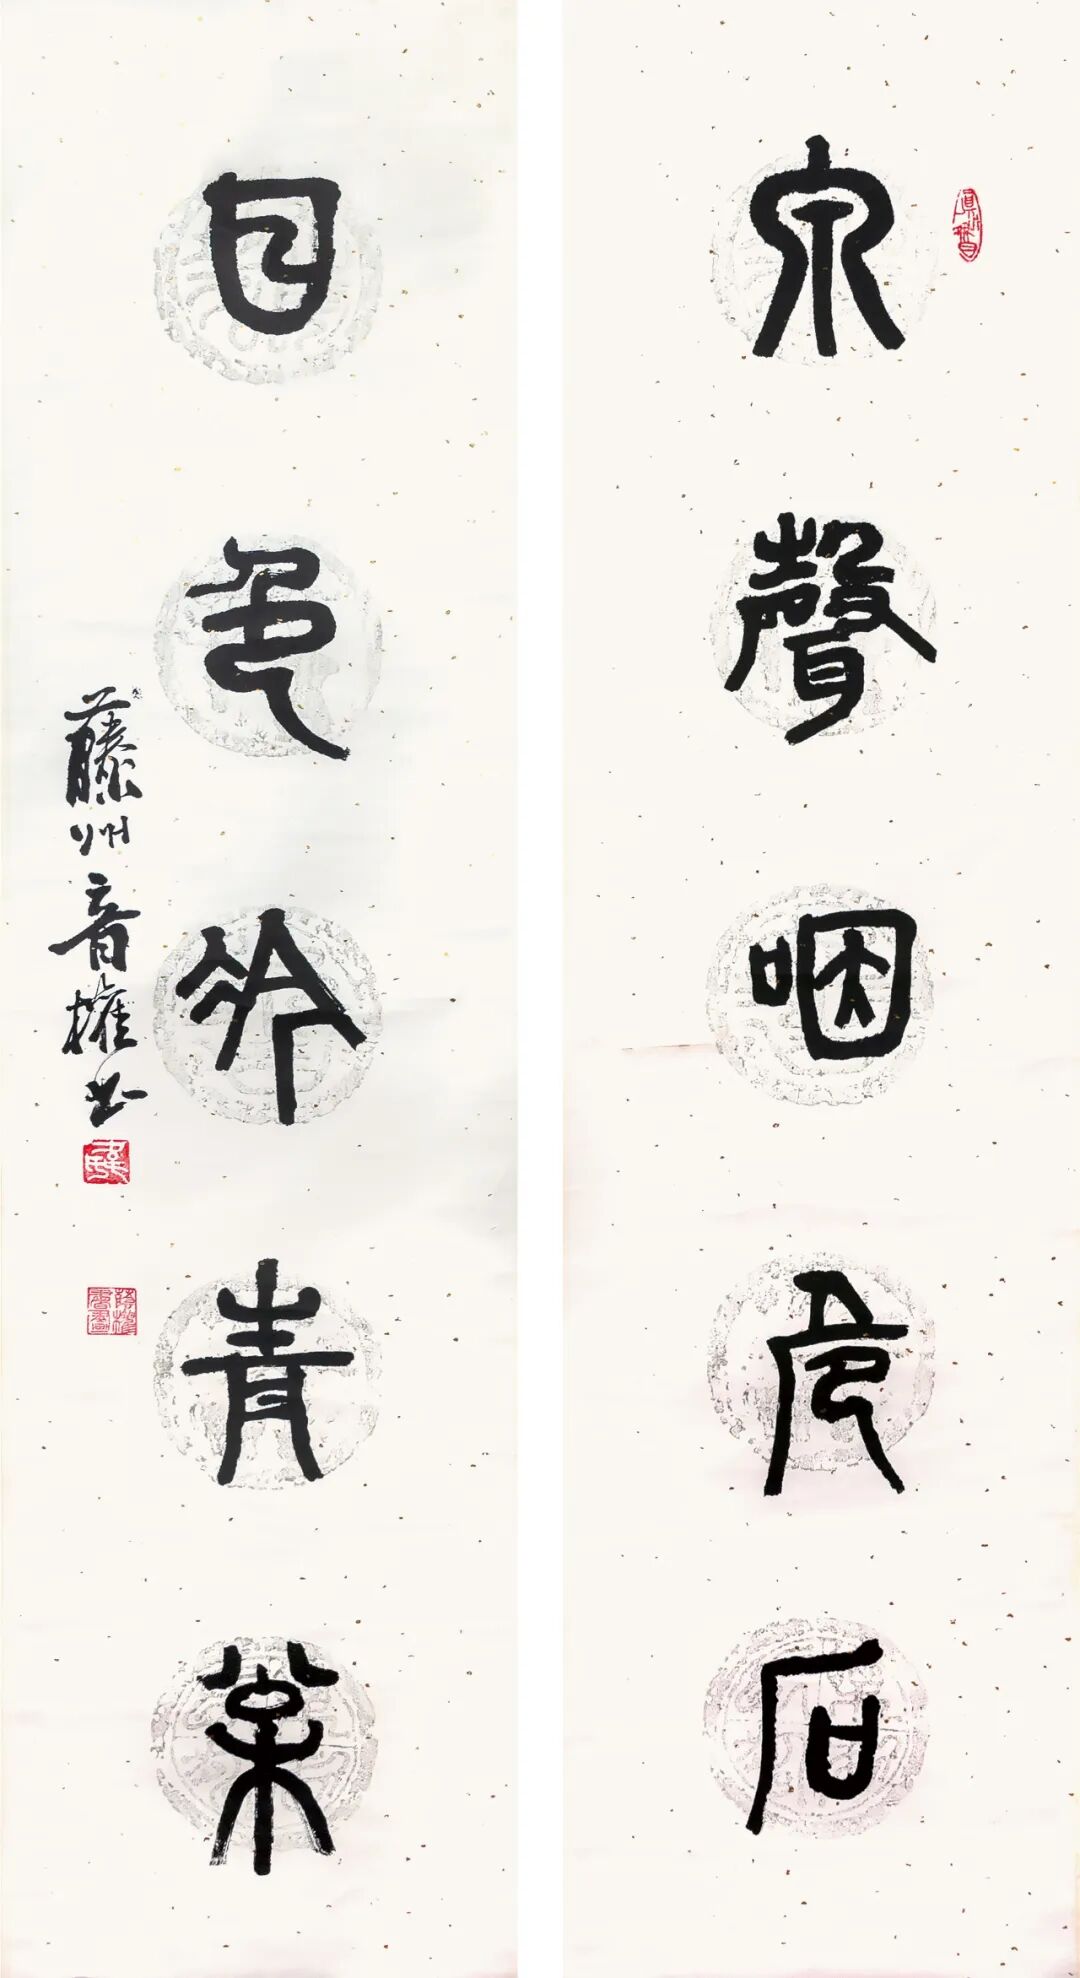 泉聲咽危石
日色冷青松
藤州音權书